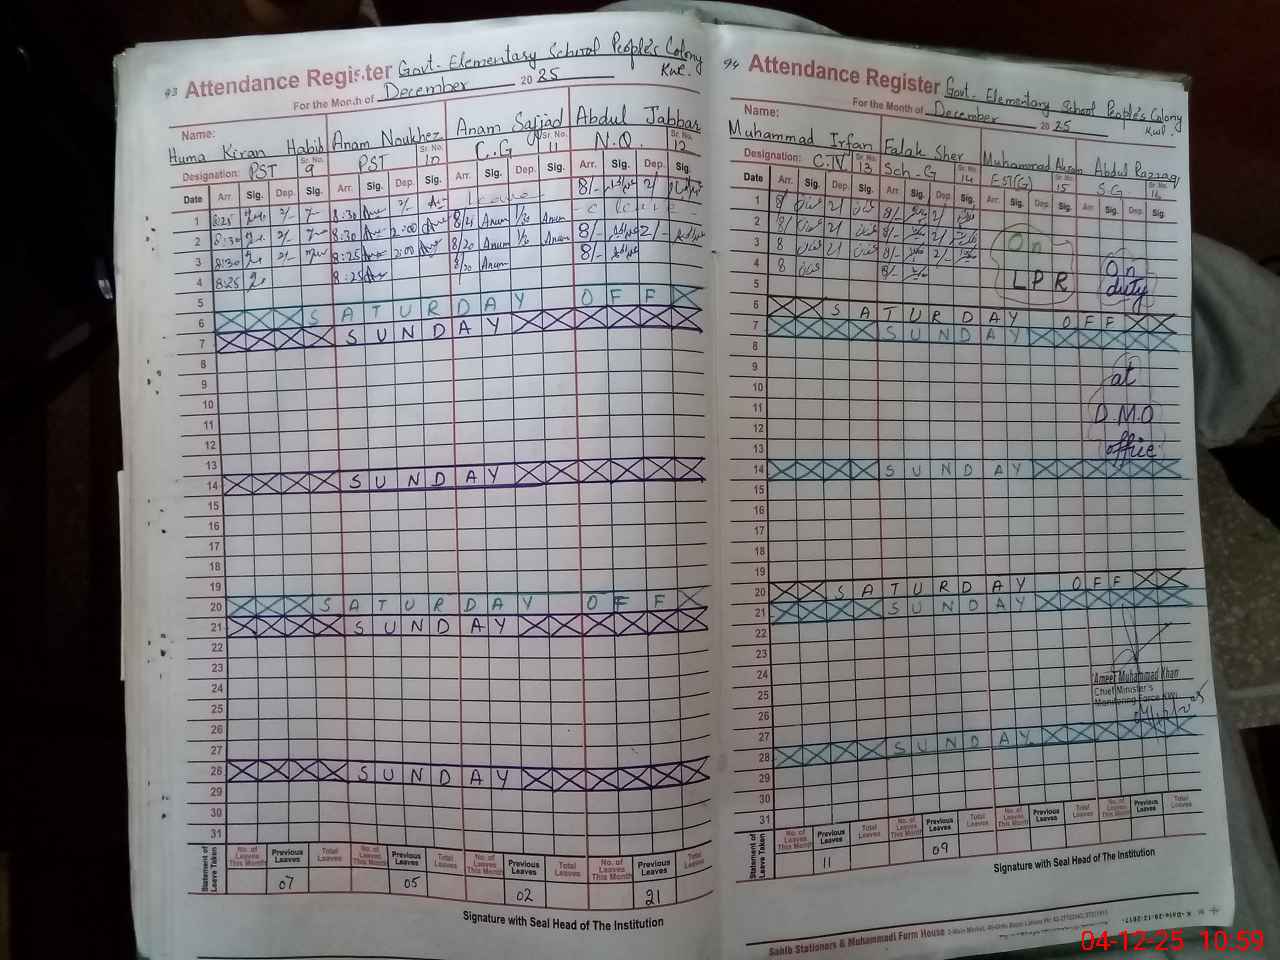 93 Attendance Register Govt. Elementary School People's Colony
Kwl.
For the Month of December 2025
Name:
Huma Kiran Habib Anam Noukhez Anam Sajjad Abdul Jabbar
Designation: PST Sr. No. 9 PST Sr. No. 10 C.G Sr. No. 11 N.Q. Sr. No. 12
Date Arr. Sig. Dep. Sig. Arr. Sig. Dep. Sig. Arr. Sig. Dep. Sig. Arr. Sig. Dep. Sig.
1 8:25 2/- 8:30 2/- Leave 8/- 2/-
2 8:30 2/- 8:30 2:00 8/20 Anam 1/30 Anam Leave
3 8:30 2/- 8:25 2:00 8/20 Anam 1/30 Anam 8/- 2/-
4 8:25 8:25 8/20 Anam 8/-
5
6 SATURDAY OFF
7 SUNDAY
8
9
10
11
12
13
14 SUNDAY
15
16
17
18
19
20 SATURDAY OFF
21 SUNDAY
22
23
24
25
26
27
28 SUNDAY
29
30
31
Statement of Leave Taken
No. of Leaves This Month Previous Leaves Total Leaves No. of Leaves This Month Previous Leaves Total Leaves No. of Leaves This Month Previous Leaves Total Leaves No. of Leaves This Month Previous Leaves Total Leaves
07 05 02 21
Signature with Seal Head of The Institution
94 Attendance Register Govt. Elementary School People's Colony
Kwl.
For the Month of December 2025
Name:
Muhammad Irfan Falak Sher Muhammad Akram Abdul Razzaq
Designation: C.IV Sr. No. 13 Sch-G Sr. No. 14 EST(G) Sr. No. 15 S.G. Sr. No. 16
Date Arr. Sig. Dep. Sig. Arr. Sig. Dep. Sig. Arr. Sig. Dep. Sig. Arr. Sig. Dep. Sig.
1 8/ 2/ 8/- 2/
2 8/ 2/ 8/- 2/
3 8 2/ 8/- 2/-
4 8 8/-
On
LPR
On
duty
5
6 SATURDAY OFF
7 SUNDAY
8
9
at
10
11
D.M.O
12
13
office
14 SUNDAY
15
16
17
18
19
20 SATURDAY OFF
21 SUNDAY
22
23
24
Ameer Muhammad Khan
25
Chief Minister's
Monitoring Force KWL
26
27
28 SUNDAY
29
30
31
Statement of Leave Taken
No. of Leaves This Month Previous Leaves Total Leaves No. of Leaves This Month Previous Leaves Total Leaves No. of Leaves This Month Previous Leaves Total Leaves No. of Leaves This Month Previous Leaves Total Leaves
11 09
Signature with Seal Head of The Institution
Sahib Stationers & Muhammadi Form House
04-12-25 10:59